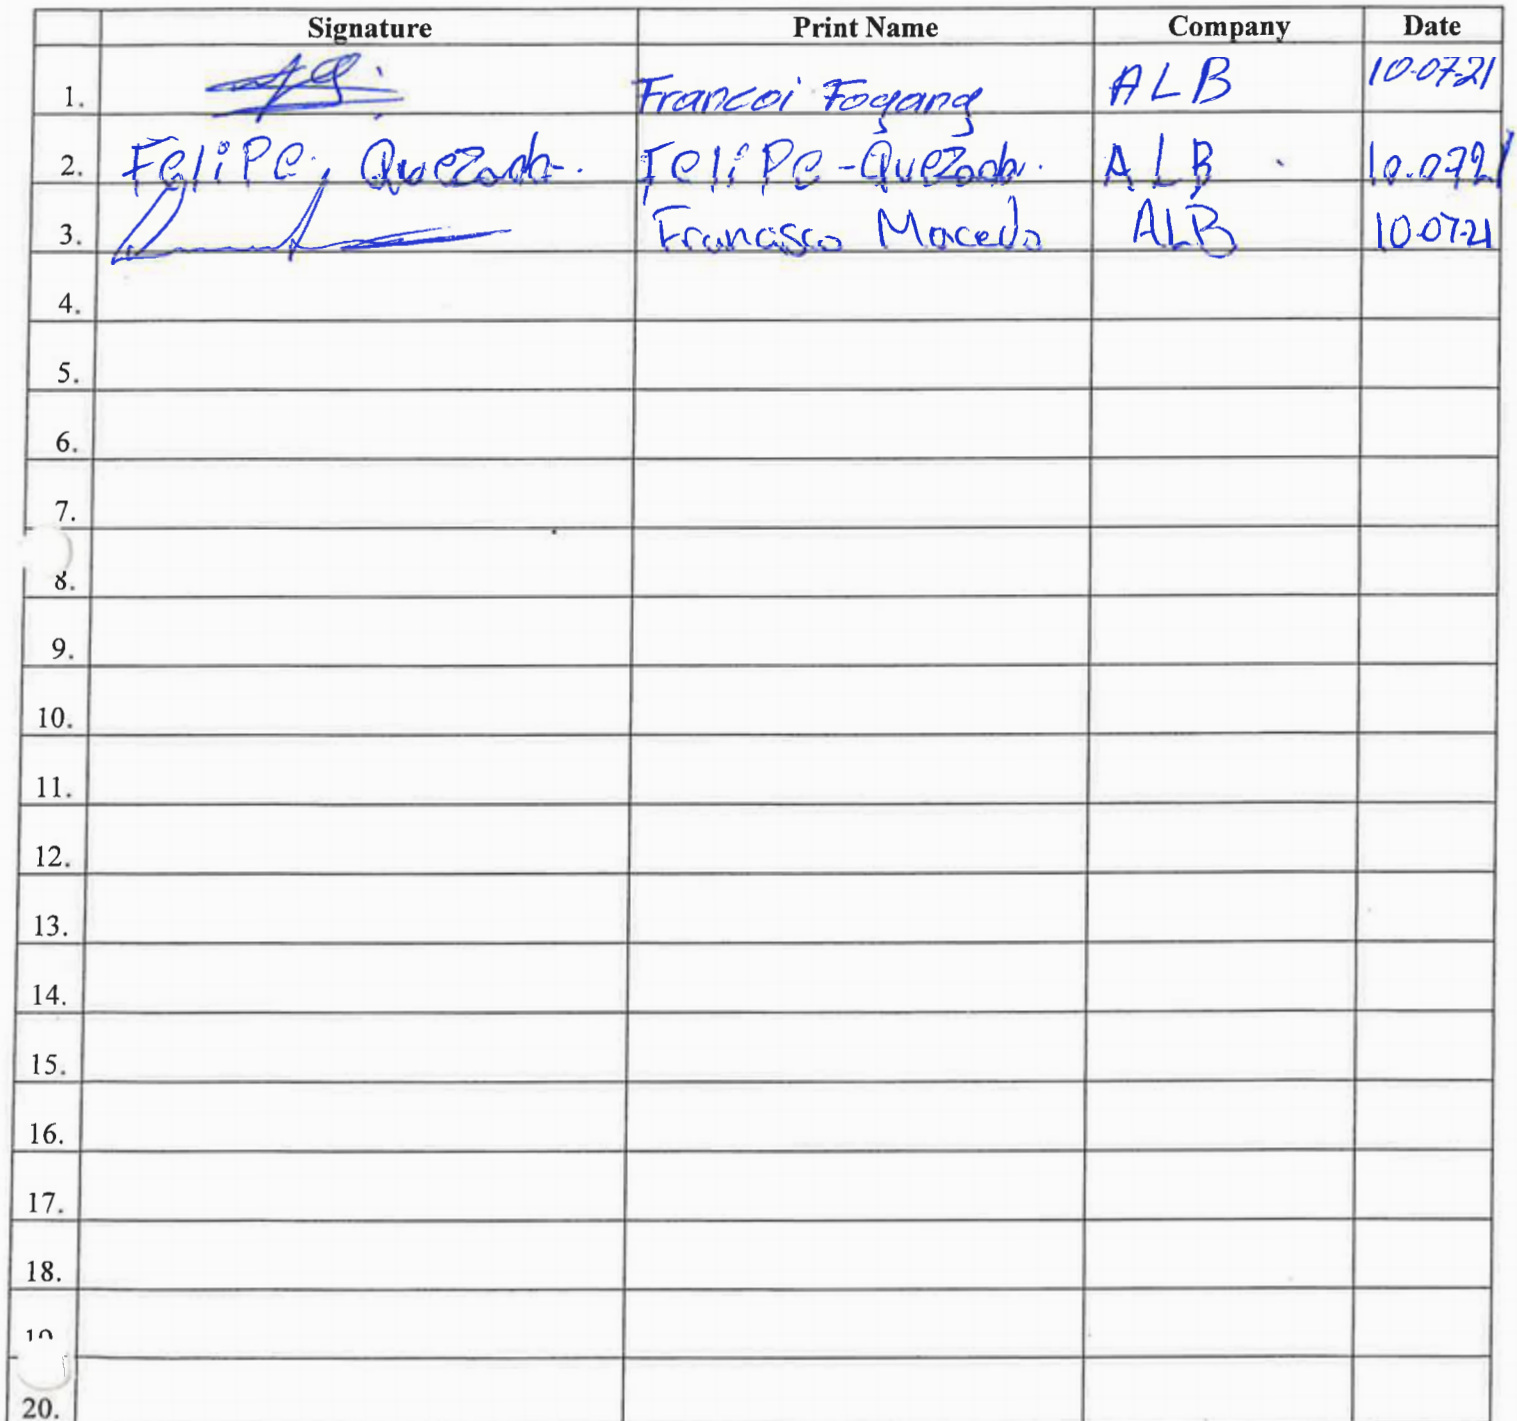 Signature Print Name Company Date
1. Francoi Fogang ALB 10-07-21
2. Felipe, Quezada. Felipe-Quezada. ALB 10.0721
3. Francisco Macedo ALB 10-07-21
4.
5.
6.
7.
8.
9.
10.
11.
12.
13.
14.
15.
16.
17.
18.
20.